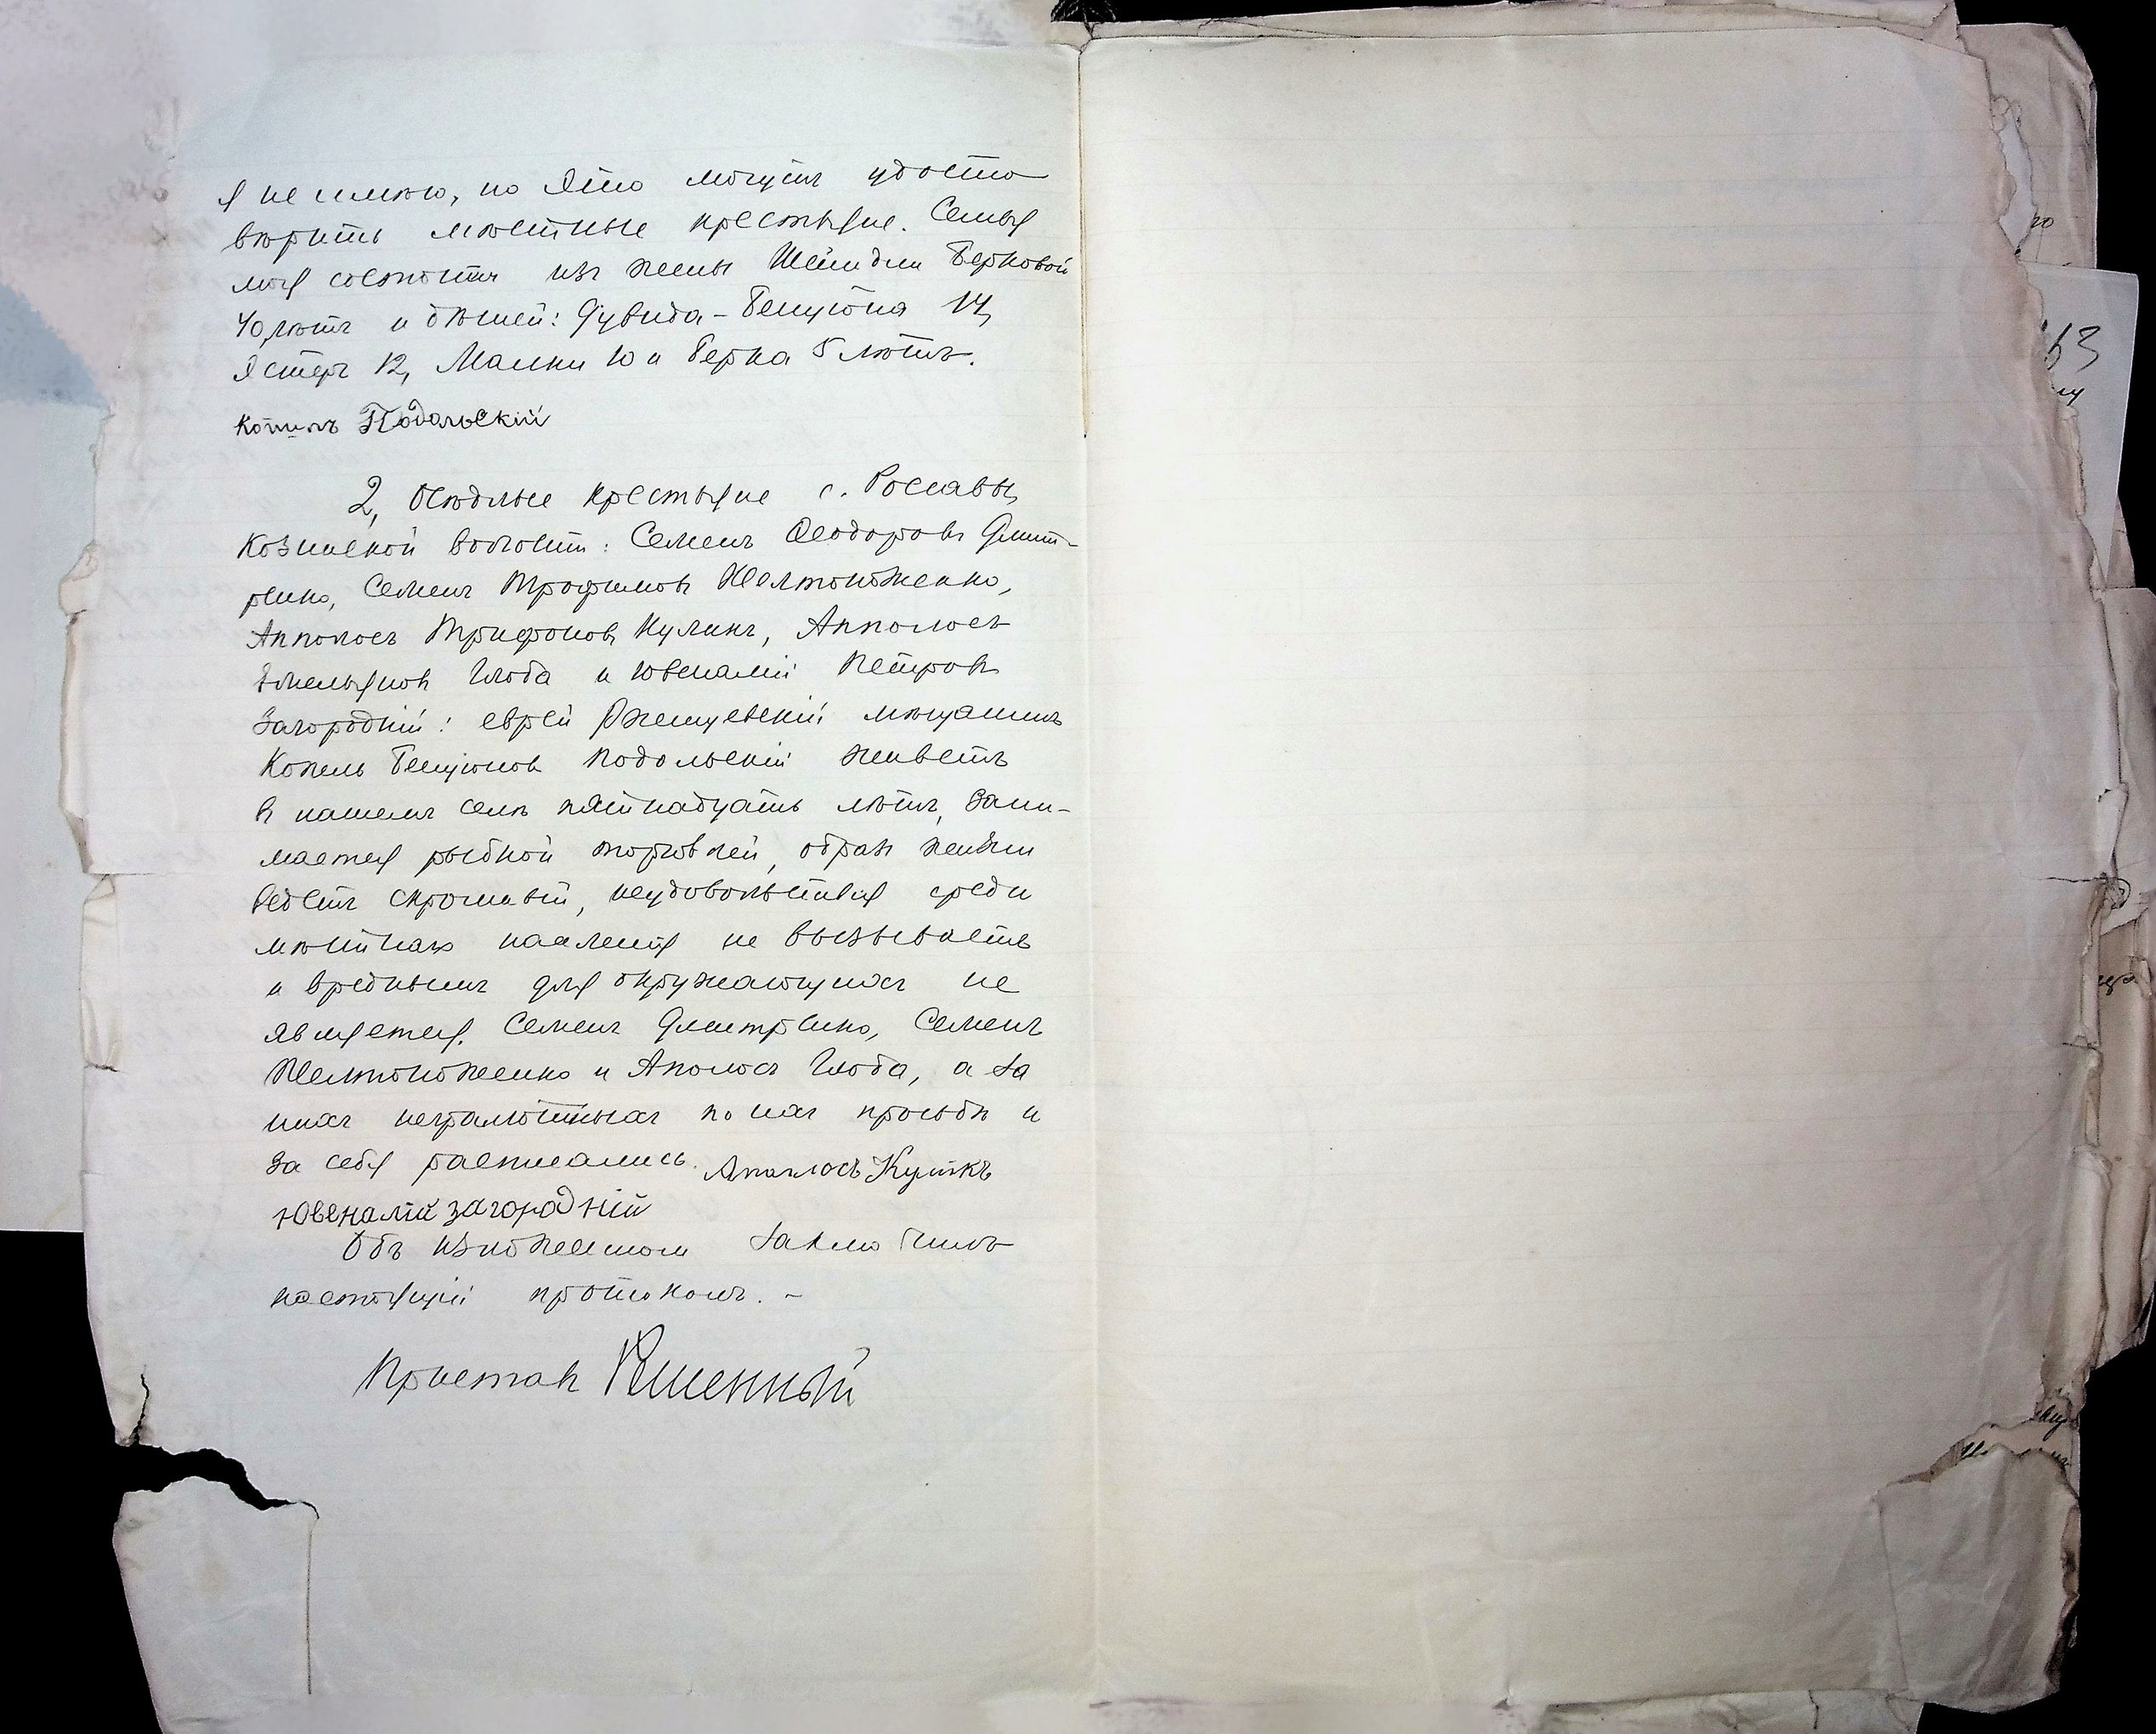 я не имѣю, но это могутъ удосто
вѣрить мѣстные крестьяне. Семья
моя состоитъ изъ жены Шейндли Берковой
40 лѣтъ и дѣтей: Дувида-Бенціона 14,
Эстеръ 12, Малки 10 и Берка 5 лѣтъ.
Копель Подольскій
2, Осѣдлые крестьяне с. Россавы,
Козинской волости: Семенъ Ѳеодоровъ Дмит-
ренко, Семенъ Трофимовъ Желтоноженко,
Апполосъ Трифоновъ Куликъ, Апполосъ
Емельяновъ Глоба и Ювеналій Петровъ
Загородній: еврей Ржищевскій мѣщанинъ
Копель Бенціоновъ Подольскій живетъ
въ нашемъ селѣ пятнадцать лѣтъ, зани-
мается рыбной торговлей, образъ жизни
ведетъ скромный, неудовольствія среди
мѣстнаго населенія не вызываетъ
и вреднымъ для окружающихъ не
является. Семенъ Дмитренко, Семенъ
Желтоноженко и Аполосъ Глоба, а за
нихъ неграмотныхъ по ихъ просьбѣ и
за себя расписались. Аполлосъ Куликъ
Ювеналій Загородній
Объ изложенномъ заключилъ
настоящій протоколъ. -
Приставъ